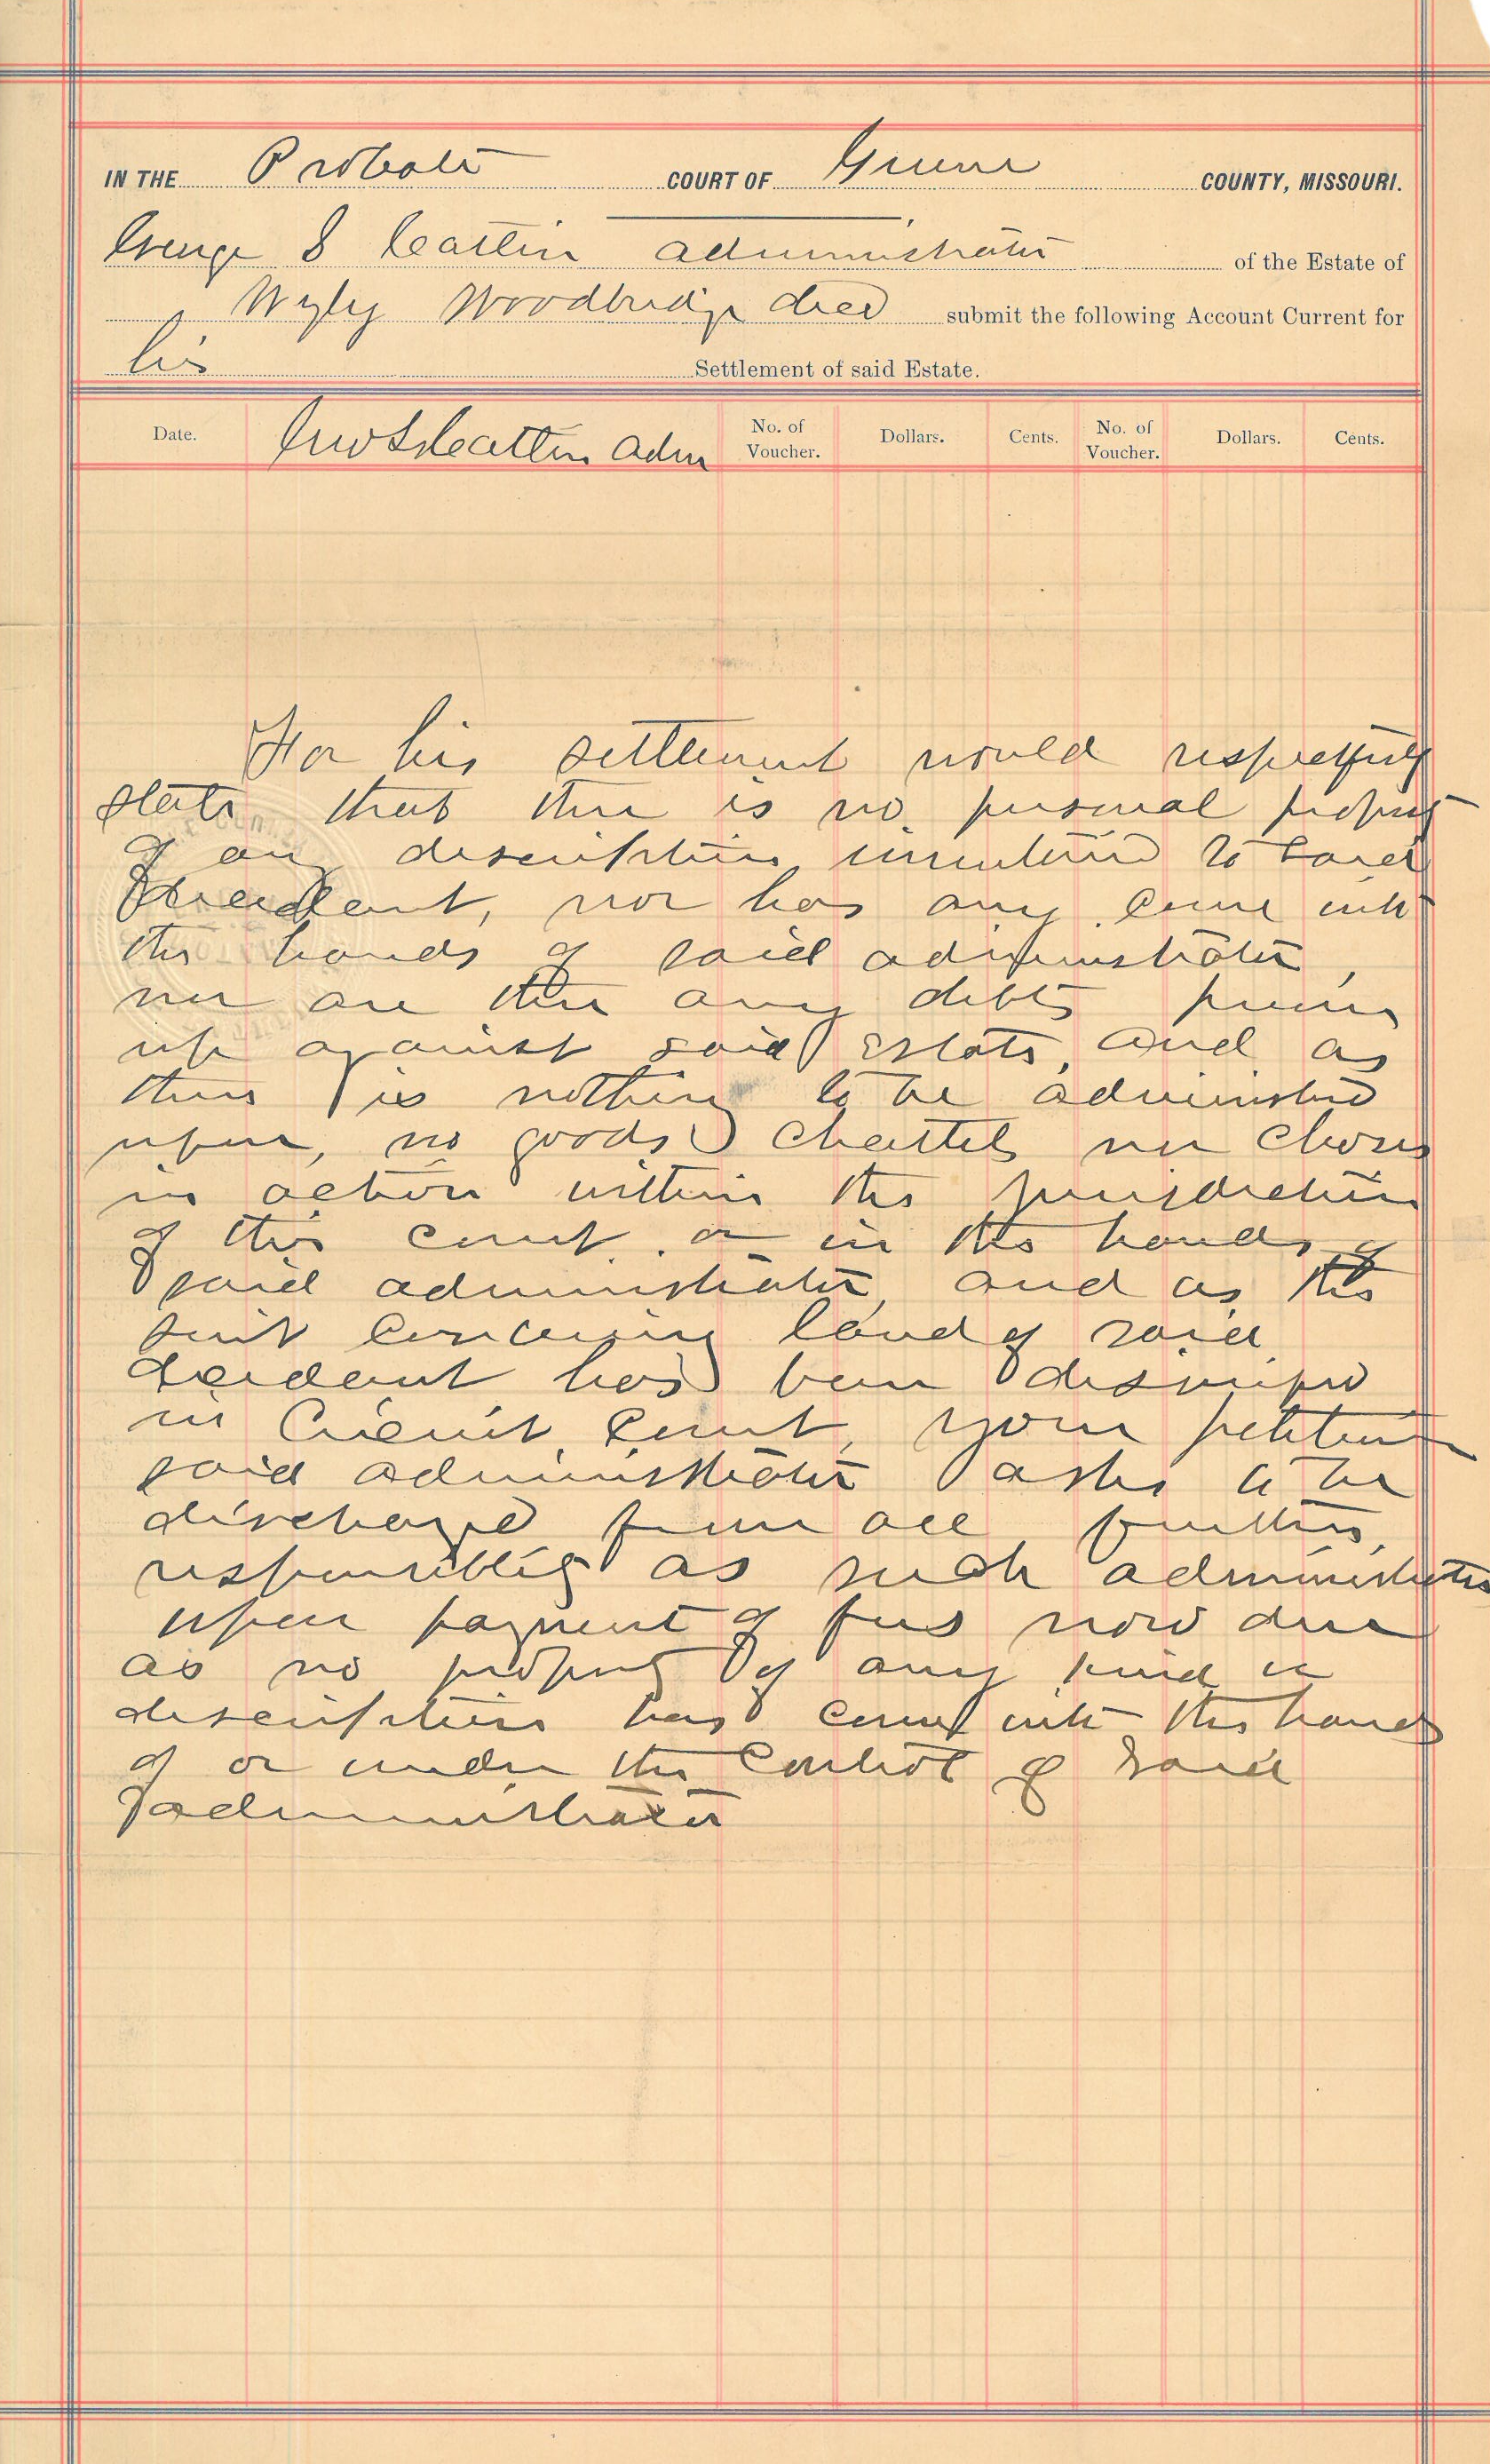 IN THE Probate COURT OF Greene COUNTY, MISSOURI.
George S Cattlin administrator of the Estate of
Wyly Woodbridge decd submit the following Account Current for
his Settlement of said Estate.
Date. Geo S Cattlin Adm No. of Voucher. Dollars. Cents. No. of Voucher. Dollars. Cents.
For his settlement would respectfuly
state that there is no personal property
of any description inventoried to said
decedent, nor has any come into
the hands of said administrator,
nor are there any debts proven
up against said Estate, and as
there is nothing to be administered
upon, no goods Chattels nor Choses
in action within the jurisdiction
of this court. or in the hands of
said administrator, and as the
suit concerning land of said
decedent has been dismissed
in Circuit Court, your petitioner
said administrator asks to be
discharged from all further
responsibility as such administrator
upon payment of fees now due
as no property of any kind or
description has come into the hands
of or under the Control of said
administrator